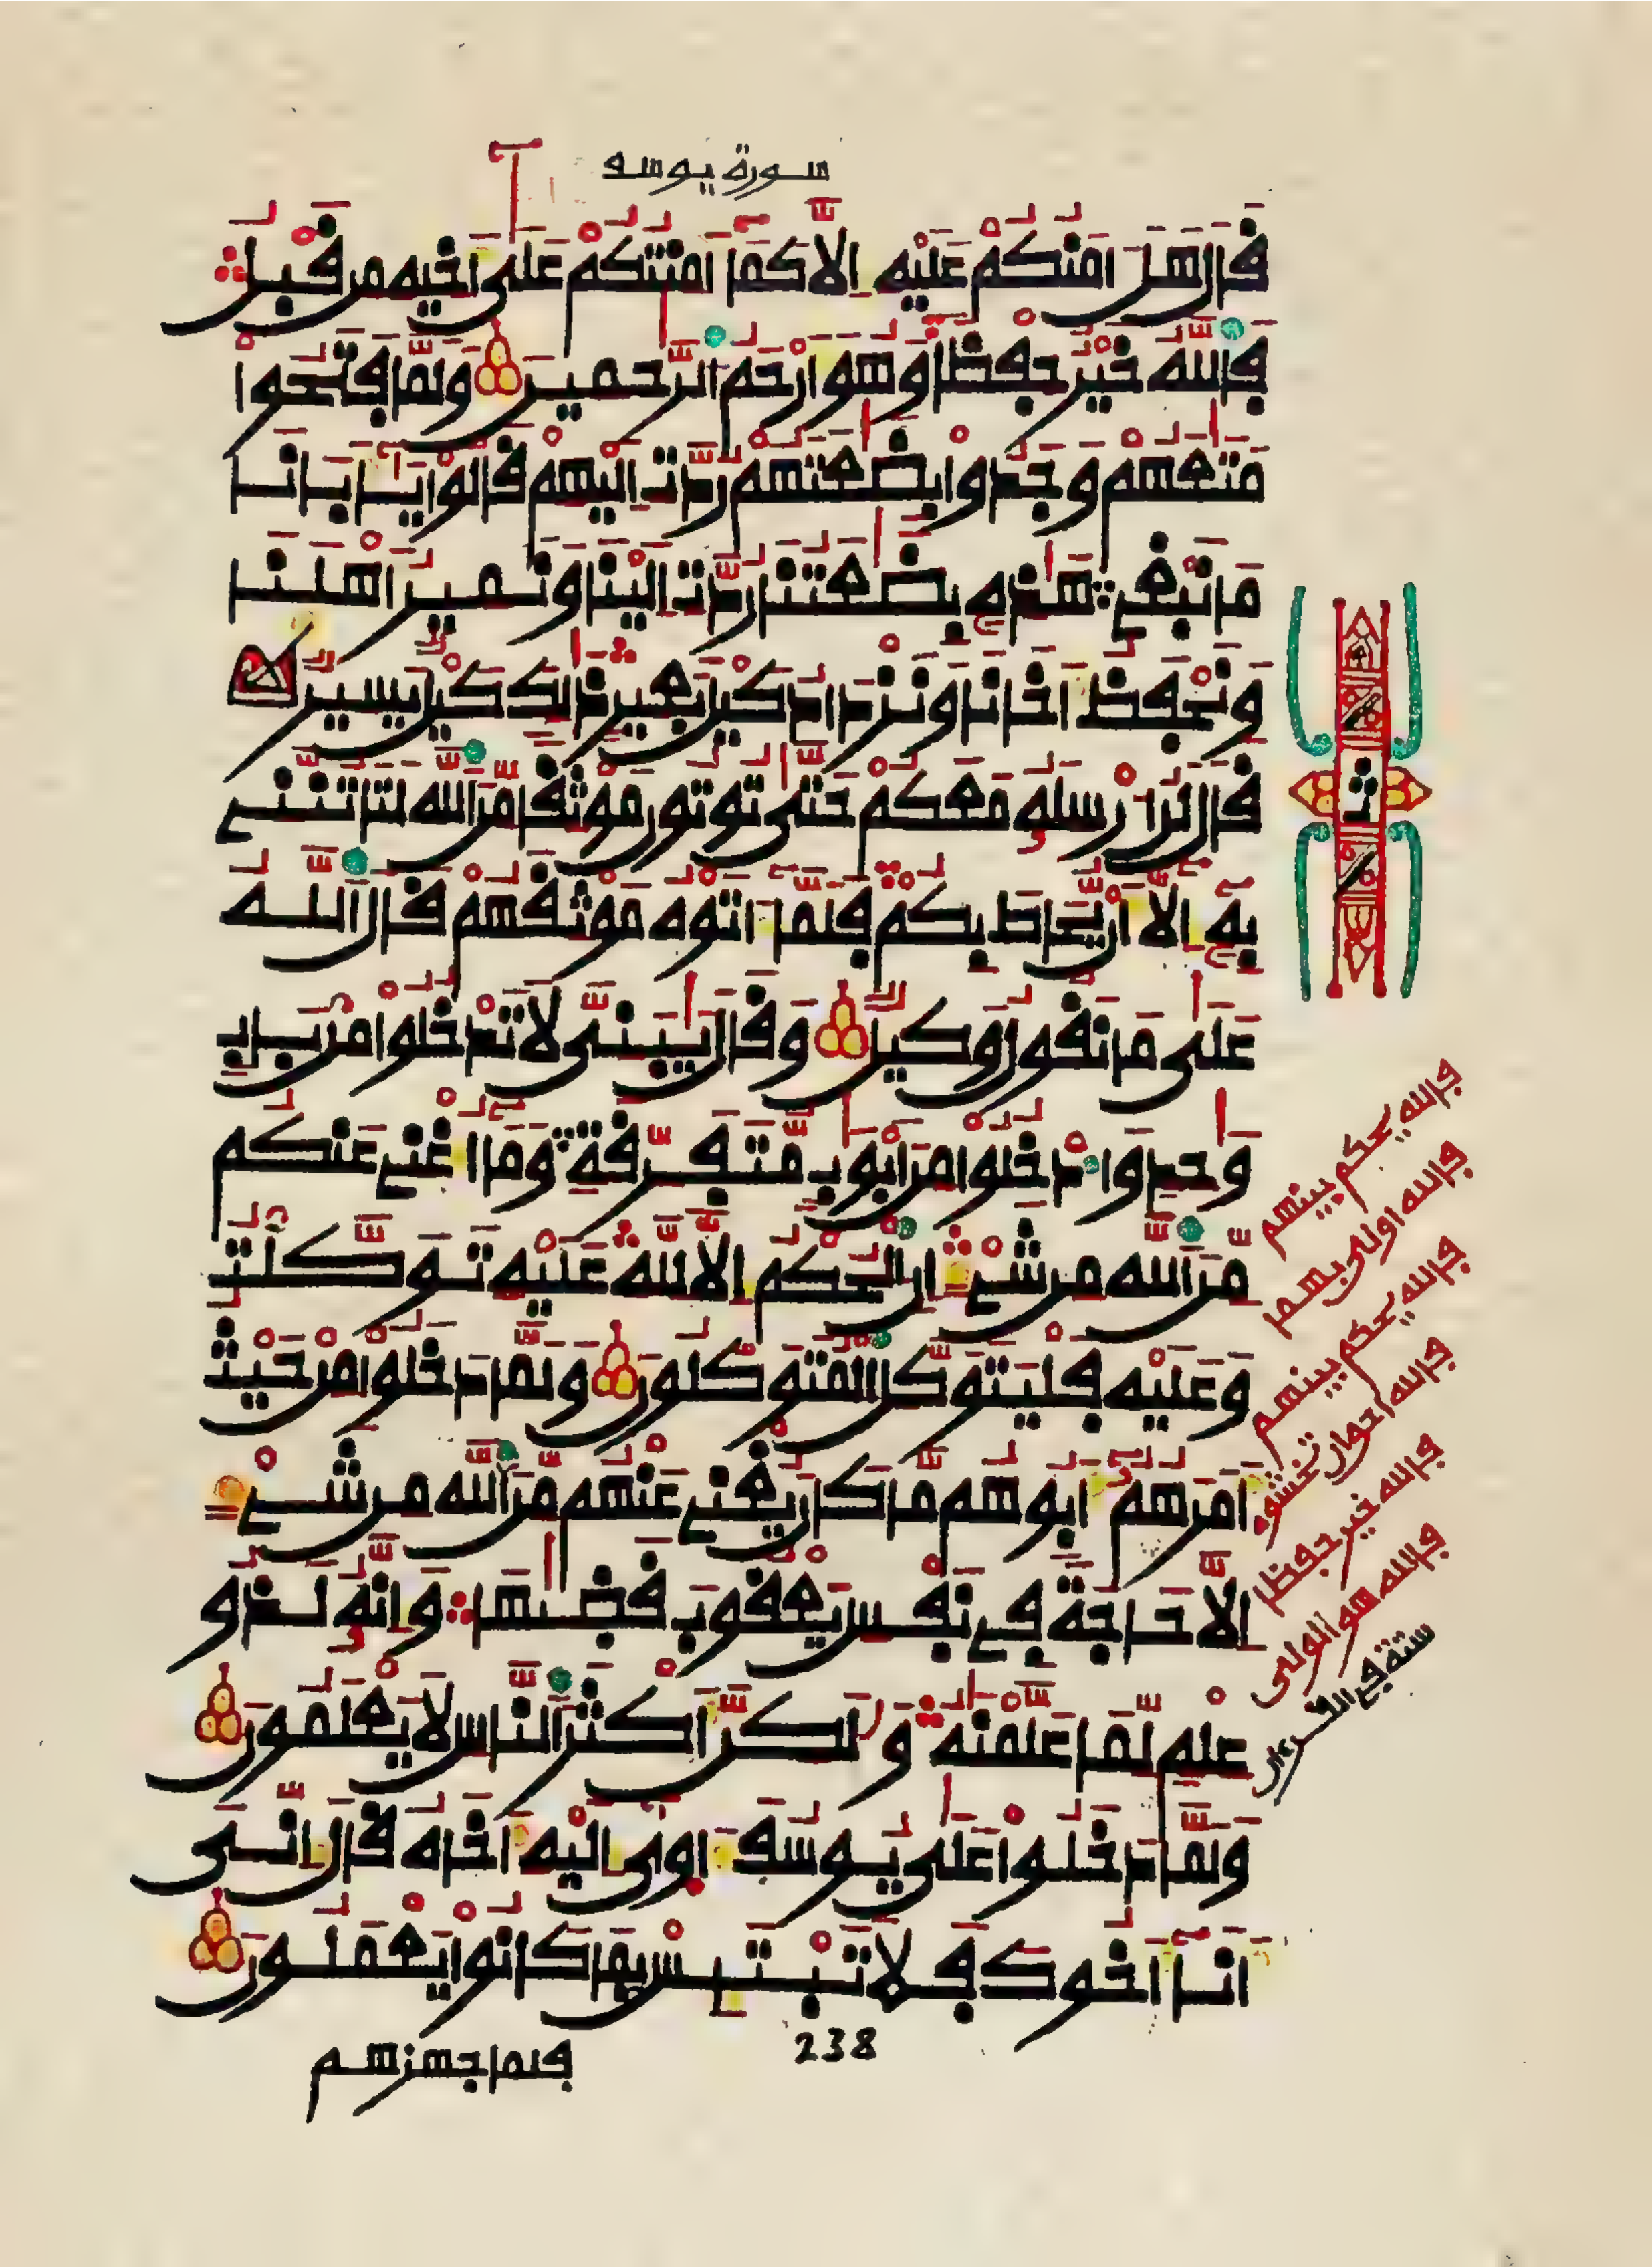 سورة يوسف
قَالَ هَلَ امَنُكُمْ عَلَيْهِ إِلَّا كَمَا أَمِنتُكُمْ عَلَىٰ أَخِيهِ مِن قَبْلُ
فَاللَّهُ خَيْرٌ حِفْظًا وَهُوَ أَرْحَمُ الرَّٰحِمِينَ وَلَمَّا فَتَحُوا
مَتَٰعَهُمْ وَجَدُوا بِضَٰعَتَهُمْ رُدَّتِ الَيْهِمْ قَالُوا يَا أَبَانَا
مَا نَبْغِي هَٰذِهِ بِضَٰعَتُنَا رُدَّتِ الَيْنَا وَنَمِيرُ أَهْلَنَا
وَنَحْفَظُ أَخَانَا وَنَزْدَادُ كَيْلَ بَعِيرٍ ذَٰلِكَ كَيْلٌ يَسِيرٌ
قَالَ لَنُ ارْسِلَهُ مَعَكُمْ حَتَّىٰ تُوتُونِ مَوْثِقًا مِّنَ اللَّهِ لَتَاتُنَّنِي
بِهِ إِلَّا أَنْ يُّحَاطَ بِكُمْ فَلَمَّا ءَاتَوْهُ مَوْثِقَهُمْ قَالَ اللَّهُ
عَلَىٰ مَا نَقُولُ وَكِيلٌ وَقَالَ يَٰبَنِيَّ لَا تَدْخُلُوا مِن بَابٍ
وَٰحِدٍ وَادْخُلُوا مِنَ ابْوَٰبٍ مُّتَفَرِّقَةٍ وَمَا أُغْنِي عَنكُم
مِّنَ اللَّهِ مِن شَيْءٍ إِنِ الْحُكْمُ إِلَّا لِلَّهِ عَلَيْهِ تَوَكَّلْتُ
وَعَلَيْهِ فَلْيَتَوَكَّلِ الْمُتَوَكِّلُونَ وَلَمَّا دَخَلُوا مِنْ حَيْثُ
أَمَرَهُمْ أَبُوهُم مَّا كَانَ يُغْنِي عَنْهُم مِّنَ اللَّهِ مِن شَيْءٍ
إِلَّا حَاجَةً فِي نَفْسِ يَعْقُوبَ قَضَىٰهَا وَإِنَّهُ لَذُو
عِلْمٍ لِّمَا عَلَّمْنَٰهُ وَلَٰكِنَّ أَكْثَرَ النَّاسِ لَا يَعْلَمُونَ
وَلَمَّا دَخَلُوا عَلَىٰ يُوسُفَ ءَاوَىٰ إِلَيْهِ أَخَاهُ قَالَ إِنِّيَ
أَنَا أَخُوكَ فَلَا تَبْتَئِسْ بِمَا كَانُوا يَعْمَلُونَ
238
فلما جهزهم
ث
فالله يحكم بينهم
فالله اولى بهما
فالله يحكم بينهم
فالله احق ان تخشوه
فالله خير حفظا
فالله هو الولي
ستة في القرءان